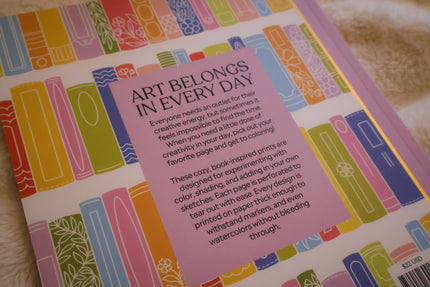 ART BELONGS
IN EVERY DAY
Everyone needs an outlet for their
creative energy, but sometimes it
feels impossible to find the time.
When you need a little dose of
creativity in your day, pick out your
favorite page and get to coloring!
These cozy, book-inspired prints are
designed for experimenting with
color, shading, and adding in your own
sketches. Each page is perforated to
tear out with ease. Every design is
printed on paper thick enough to
withstand markers, and even
watercolors without bleeding
through.
$22 USD